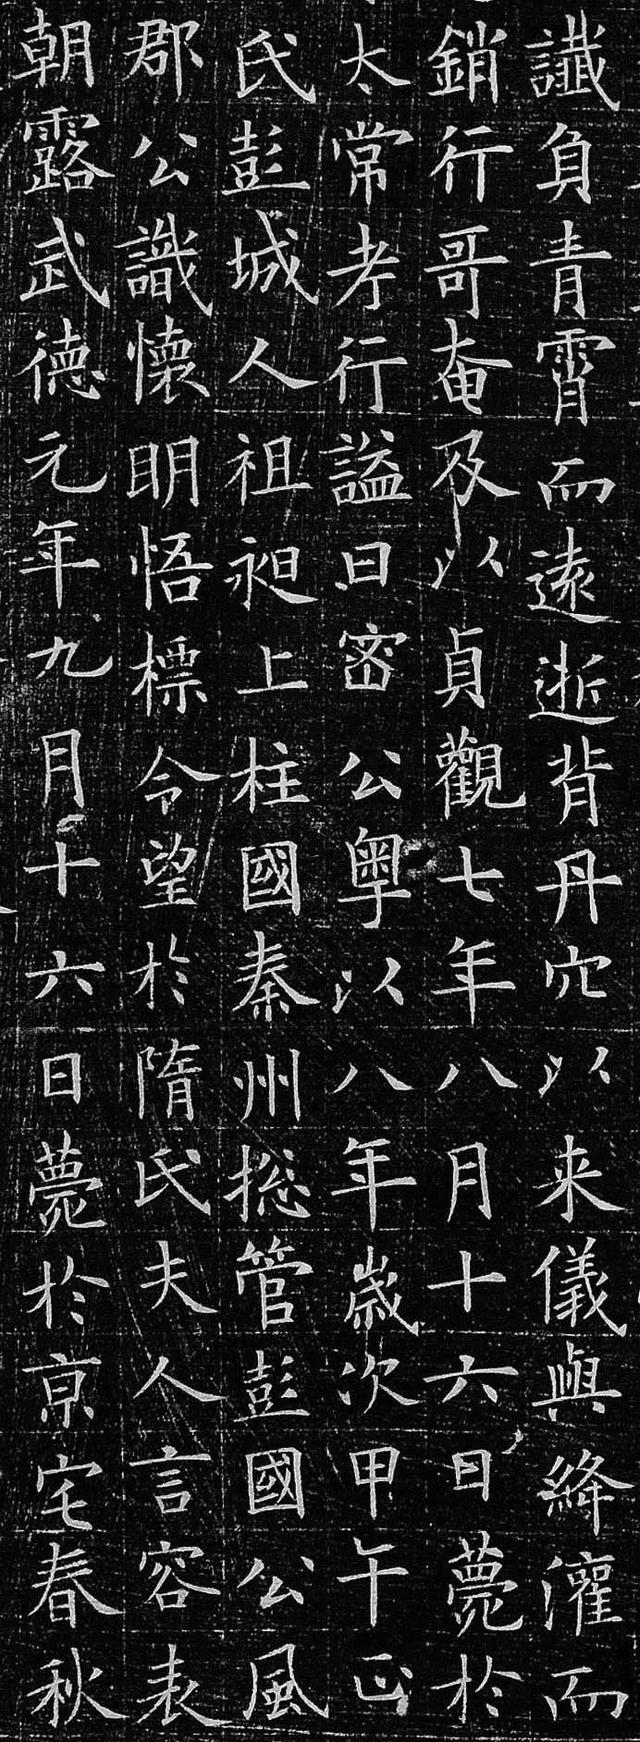 讖負青霄而遠逝背丹穴以来儀與絳灌而
銷行哥奄及以貞觀七年八月十六日薨於
太常考行謚曰密公粤以八年嵗次甲午正
氏彭城人祖昶上柱國秦州揔管彭國公風
郡公識懷明悟標令望於隋氏夫人言容表
朝露武徳元年九月十六日薨於京宅春秋